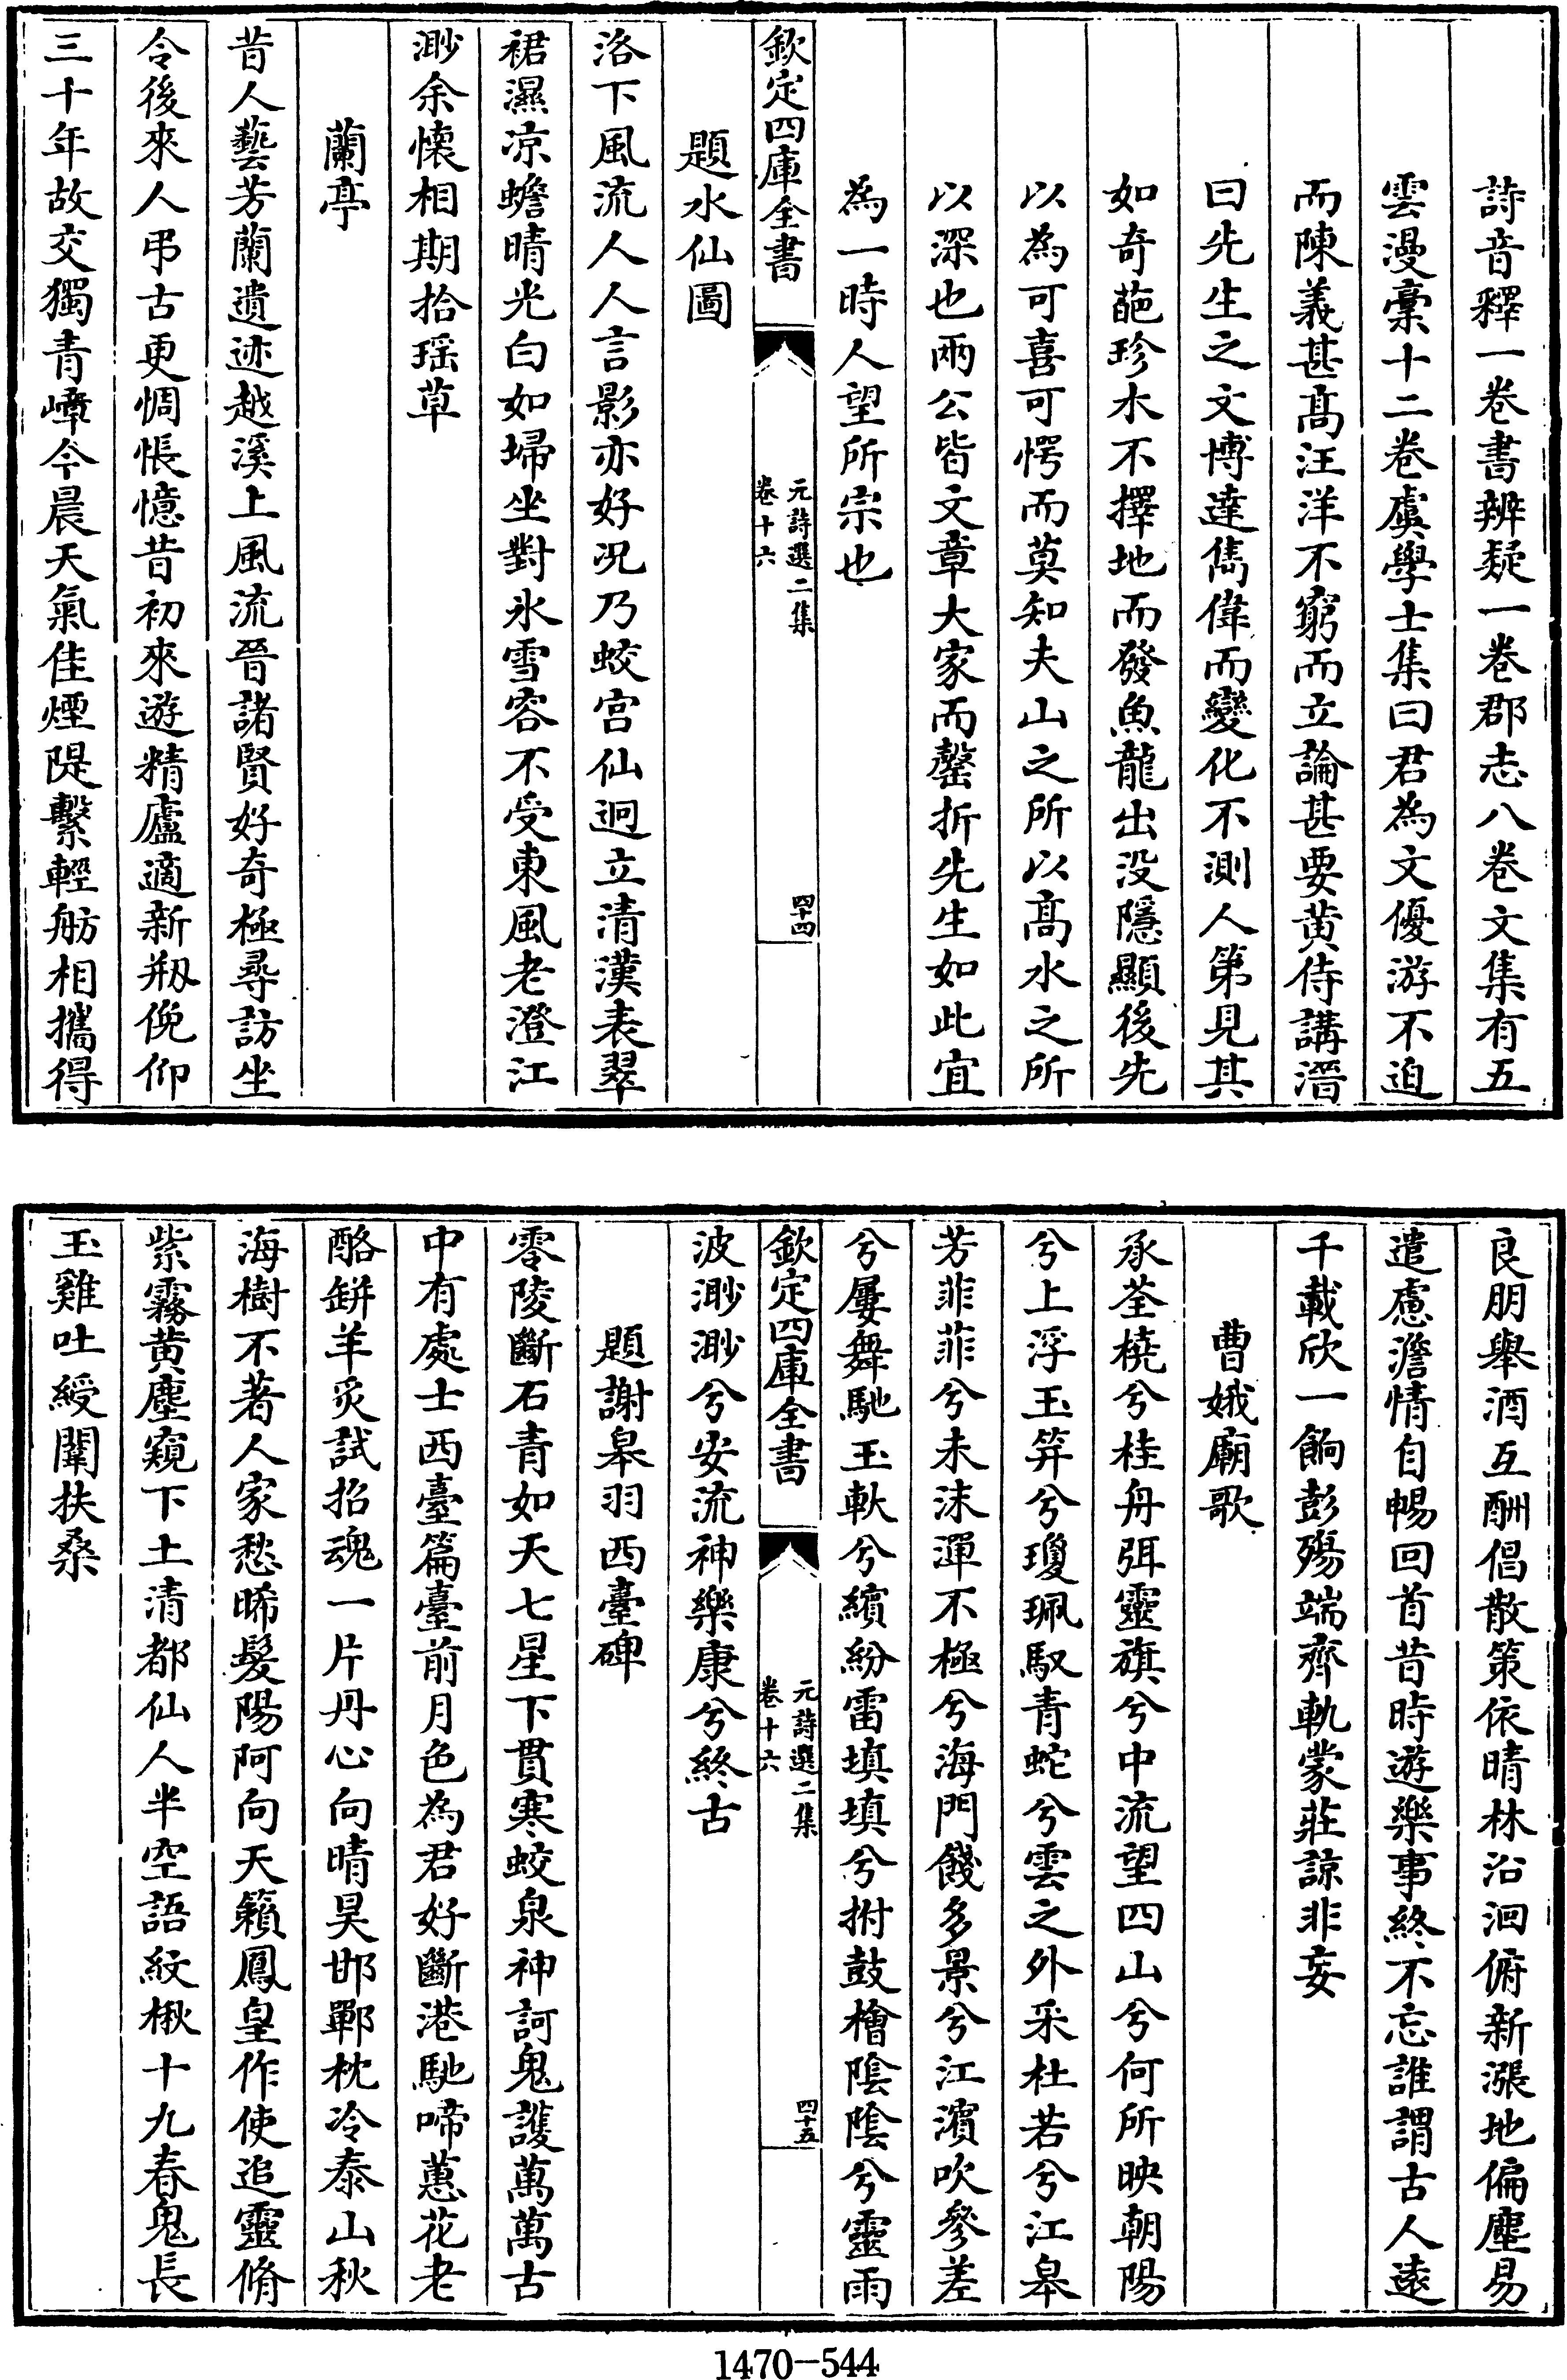 詩音釋一卷書辨疑一卷郡志八卷文集有五
雲漫稾十二卷虞學士集曰君為文優游不迫
而陳義甚髙汪洋不窮而立論甚要黄侍講溍
曰先生之文博達雋偉而變化不測人第見其
如奇葩珍木不擇地而發魚龍出没隱顯後先
以為可喜可愕而莫知夫山之所以髙水之所
以深也兩公皆文章大家而罄折先生如此宜
為一時人望所宗也
欽定四庫全書
元詩選二集
卷十六
四十四
題水仙圖
洛下風流人人言影亦好况乃蛟宫仙迥立清漢表翠
裙濕凉蟾晴光白如埽坐對氷雪容不受東風老澄江
渺余懐相期拾瑶草
蘭亭
昔人藝芳蘭遺迹越溪上風流晉諸賢好奇極尋訪坐
令後來人弔古更惆悵憶昔初來遊精廬適新剏俛仰
三十年故交獨青嶂今晨天氣佳煙隄繫輕舫相攜得
良朋舉酒互酬倡散策依晴林沿洄俯新漲地偏塵易
遣慮澹情自暢回首昔時遊樂事終不忘誰謂古人逺
千載欣一餉彭殤端齊軌蒙莊諒非妄
曹娥廟歌
承荃橈兮桂舟弭靈旗兮中流望四山兮何所映朝陽
兮上浮玉笄兮瓊珮馭青蛇兮雲之外采杜若兮江臯
芳菲菲兮未沬渾不極兮海門餞多景兮江濱吹參差
兮屢舞馳玉軑兮繽紛雷填填兮拊鼓檜陰陰兮靈雨
欽定四庫全書
元詩選二集
卷十六
四十五
波渺渺兮安流神樂康兮終古
題謝臯羽西臺碑
零陵斷石青如天七星下貫寒蛟泉神訶鬼護萬萬古
中有處士西臺篇臺前月色為君好斷港馳啼蕙花老
酪缾羊炙試招魂一片丹心向晴昊邯鄲枕冷泰山秋
海樹不著人家愁晞髮陽阿向天籟鳳皇作使追靈脩
紫霧黄塵窺下土清都仙人半空語紋楸十九春鬼長
玉雞吐綬闈扶桑
1470-544